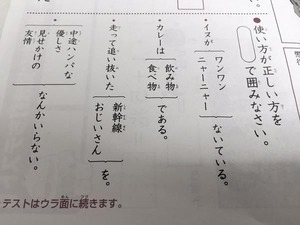 使い方が正しい方を
で囲みなさい。
・イヌが
ワンワン
ニャーニャー
ないている。
・カレーは
飲み物
食べ物
である。
・走って追い抜いた
新幹線
おじいさん
を。
・中途ハンパな
優しさ
見せかけの
友情
なんかいらない。
テストはウラ面に続きます。